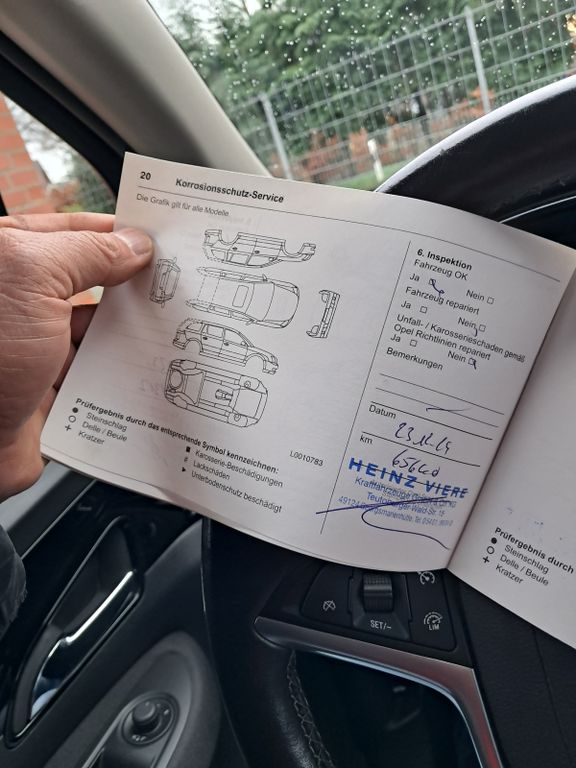 20 Korrosionsschutz-Service
Die Grafik gilt für alle Modelle.
L0010783
Prüfergebnis durch das entsprechende Symbol kennzeichnen:
● Steinschlag
○ Delle / Beule
+ Kratzer
■ Karosserie-Beschädigungen
# Lackschäden
▶ Unterbodenschutz beschädigt
6. Inspektion
Fahrzeug OK
Ja Nein
Fahrzeug repariert
Ja Nein
Unfall- / Karosserieschäden gemäß
Opel Richtlinien repariert
Ja Nein
Bemerkungen
Datum
km
65640
HEINZ VIERE
Teutoburger-Wald-Str.
49124
Prüfergebnis durch
● Steinschlag
○ Delle / Beule
+ Kratzer
SET/–
LIM